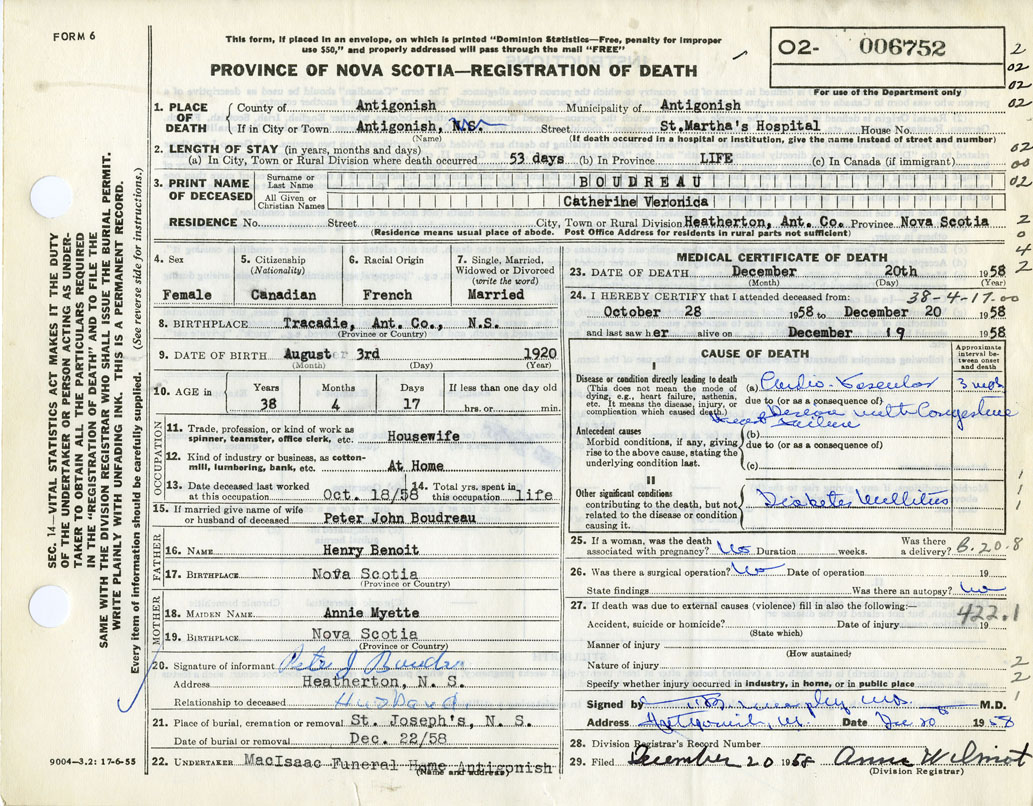 FORM 6
This form, if placed in an envelope, on which is printed "Dominion Statistics—Free, penalty for improper
use $50," and properly addressed will pass through the mail "FREE"
PROVINCE OF NOVA SCOTIA—REGISTRATION OF DEATH
O2- 006752
For use of the Department only
2
02
02
02
02
00
02
2
0
4
2
1
1
1
2
2
1
SEC. 14—VITAL STATISTICS ACT MAKES IT THE DUTY
OF THE UNDERTAKER OR PERSON ACTING AS UNDER-
TAKER TO OBTAIN ALL THE PARTICULARS REQUIRED
IN THE "REGISTRATION OF DEATH" AND TO FILE THE
SAME WITH THE DIVISION REGISTRAR WHO SHALL ISSUE THE BURIAL PERMIT.
WRITE PLAINLY WITH UNFADING INK. THIS IS A PERMANENT RECORD.
Every item of information should be carefully supplied. (See reverse side for instructions.)
1. PLACE OF DEATH
County of Antigonish Municipality of Antigonish
If in City or Town Antigonish, N.S. Street St.Martha's Hospital House No.
(Name) (If death occurred in a hospital or institution, give the name instead of street and number)
2. LENGTH OF STAY (in years, months and days)
(a) In City, Town or Rural Division where death occurred 53 days (b) In Province LIFE (c) In Canada (if immigrant)
3. PRINT NAME OF DECEASED
Surname or Last Name BOUDREAU
All Given or Christian Names Catherine Veronica
RESIDENCE No. Street City, Town or Rural Division Heatherton, Ant. Co. Province Nova Scotia
(Residence means usual place of abode. Post Office Address for residents in rural parts not sufficient)
4. Sex
Female
5. Citizenship (Nationality)
Canadian
6. Racial Origin
French
7. Single, Married, Widowed or Divorced (write the word)
Married
8. BIRTHPLACE Tracadie, Ant. Co., N.S.
(Province or Country)
9. DATE OF BIRTH August 3rd 1920
(Month) (Day) (Year)
10. AGE in Years Months Days If less than one day old
38 4 17 hrs. or min.
OCCUPATION
11. Trade, profession, or kind of work as
spinner, teamster, office clerk, etc. Housewife
12. Kind of industry or business, as cotton-
mill, lumbering, bank, etc. At Home
13. Date deceased last worked
at this occupation Oct. 18/58
14. Total yrs. spent in
this occupation life
15. If married give name of wife
or husband of deceased Peter John Boudreau
FATHER
16. NAME Henry Benoit
17. BIRTHPLACE Nova Scotia
(Province or Country)
MOTHER
18. MAIDEN NAME Annie Myette
19. BIRTHPLACE Nova Scotia
(Province or Country)
20. Signature of informant Peter J Boudre
Address Heatherton, N. S.
Relationship to deceased Husband
21. Place of burial, cremation or removal St. Joseph's, N. S.
Date of burial or removal Dec. 22/58
22. UNDERTAKER MacIsaac Funeral Home Antigonish
(Name and address)
9004—3.2: 17-6-55
MEDICAL CERTIFICATE OF DEATH
23. DATE OF DEATH December 20th 1958
(Month) (Day) (Year)
24. I HEREBY CERTIFY that I attended deceased from: 38-4-17.00
October 28 1958 to December 20 1958
and last saw her alive on December 19 1958
CAUSE OF DEATH
Approximate interval between onset and death
I
Disease or condition directly leading to death
(This does not mean the mode of
dying, e.g., heart failure, asthenia,
etc. It means the disease, injury, or
complication which caused death.)
(a) Cardio-Vascular 3 mos
due to (or as a consequence of)
Disease with Congestive
Heart Failure
Antecedent causes
Morbid conditions, if any, giving
rise to the above cause, stating the
underlying condition last.
(b)
due to (or as a consequence of)
(c)
II
Other significant conditions
contributing to the death, but not
related to the disease or condition
causing it.
Diabetes Mellitus
25. If a woman, was the death
associated with pregnancy? No Duration weeks. Was there
a delivery? 6.20.8
26. Was there a surgical operation? No Date of operation 19
State findings Was there an autopsy? No
27. If death was due to external causes (violence) fill in also the following:—
422.1
Accident, suicide or homicide? Date of injury 19
(State which)
Manner of injury
(How sustained)
Nature of injury
Specify whether injury occurred in industry, in home, or in public place
Signed by Murphy MD M.D.
Address Antigonish Date Dec 20 1958
28. Division Registrar's Record Number
29. Filed December 20 1958 Anna Wilmot
(Division Registrar)